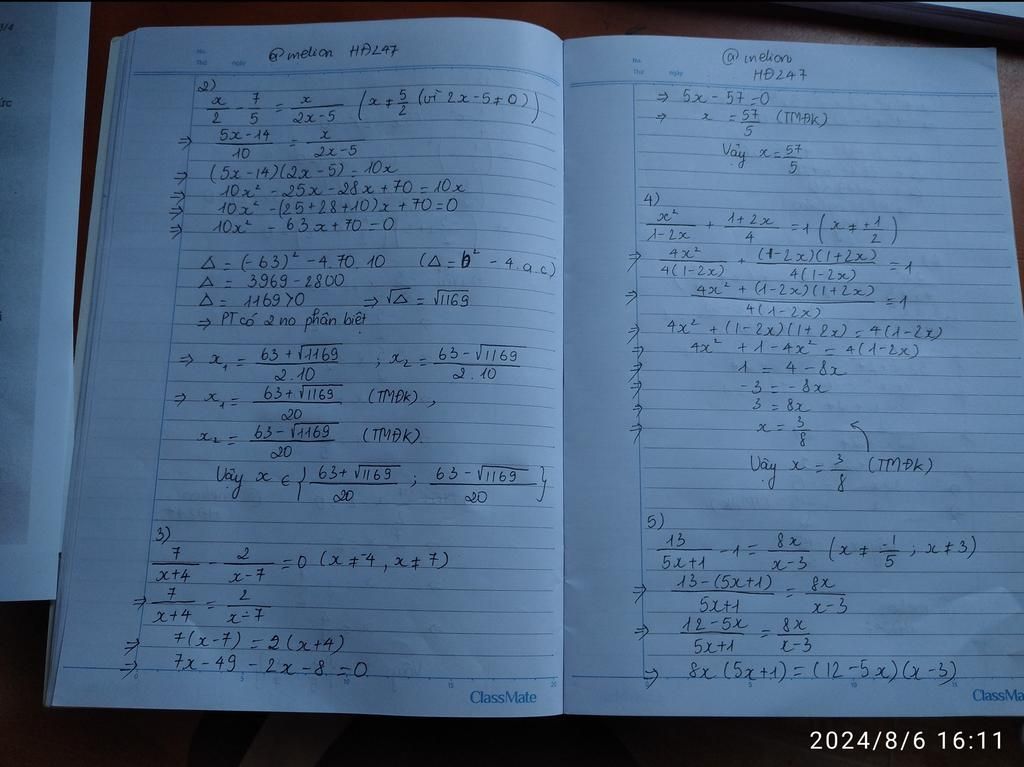 3/4
@melion HĐ247
No.
Thứ ngày
2)
x/2 - 7/5 = x/(2x-5) (x ≠ 5/2 (vì 2x-5≠0)
⇒ (5x-14)/10 = x/(2x-5)
⇒ (5x-14)(2x-5) = 10x
⇒ 10x² - 25x - 28x + 70 = 10x
⇒ 10x² - (25+28+10)x + 70 = 0
⇒ 10x² - 63x + 70 = 0
Δ = (-63)² - 4.70.10 (Δ = b² - 4.a.c)
Δ = 3969 - 2800
Δ = 1169 > 0 ⇒ √Δ = √1169
⇒ PT có 2 no phân biệt
⇒ x₁ = (63+√1169)/(2.10) ; x₂ = (63-√1169)/(2.10)
⇒ x₁ = (63+√1169)/20 (TMĐK),
x₂ = (63-√1169)/20 (TMĐK).
Vậy x ∈ {(63+√1169)/20 ; (63-√1169)/20}
3)
7/(x+4) - 2/(x-7) = 0 (x ≠ -4, x ≠ 7)
⇒ 7/(x+4) = 2/(x-7)
⇒ 7(x-7) = 2(x+4)
⇒ 7x - 49 - 2x - 8 = 0
0 5 10 15 20
ClassMate
@melion
HĐ247
No.
Thứ ngày
⇒ 5x - 57 = 0
⇒ x = 57/5 (TMĐK)
Vậy x = 57/5
4)
x²/(1-2x) + (1+2x)/4 = 1 (x ≠ ±1/2)
⇒ 4x²/4(1-2x) + (1-2x)(1+2x)/4(1-2x) = 1
⇒ (4x² + (1-2x)(1+2x))/4(1-2x) = 1
⇒ 4x² + (1-2x)(1+2x) = 4(1-2x)
⇒ 4x² + 1 - 4x² = 4(1-2x)
⇒ 1 = 4 - 8x
⇒ -3 = -8x
⇒ 3 = 8x
⇒ x = 3/8
Vậy x = 3/8 (TMĐK)
5)
13/(5x+1) - 1 = 8x/(x-3) (x ≠ -1/5 ; x ≠ 3)
⇒ (13-(5x+1))/(5x+1) = 8x/(x-3)
⇒ (12-5x)/(5x+1) = 8x/(x-3)
⇒ 8x(5x+1) = (12-5x)(x-3)
5 10 15
ClassMate
2024/8/6 16:11